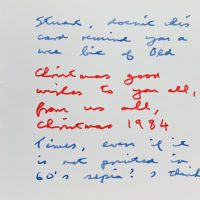 Stuart, doesn't this
card remind you a
wee bit of Old
Christmas good
wishes to you all,
from us all,
Christmas 1984
Times, even if it
is not printed in
60's sepia? I think